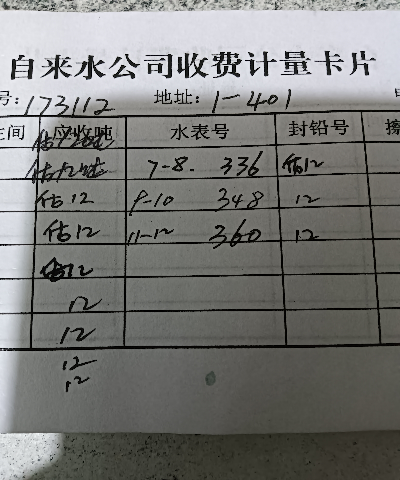 自来水公司收费计量卡片
号:173112 地址:1-401
间 应收吨 水表号 封铅号
估12吨 7-8. 336 估12
估12 9-10 348 12
估12 11-12 360 12
估12
12
12
12
12